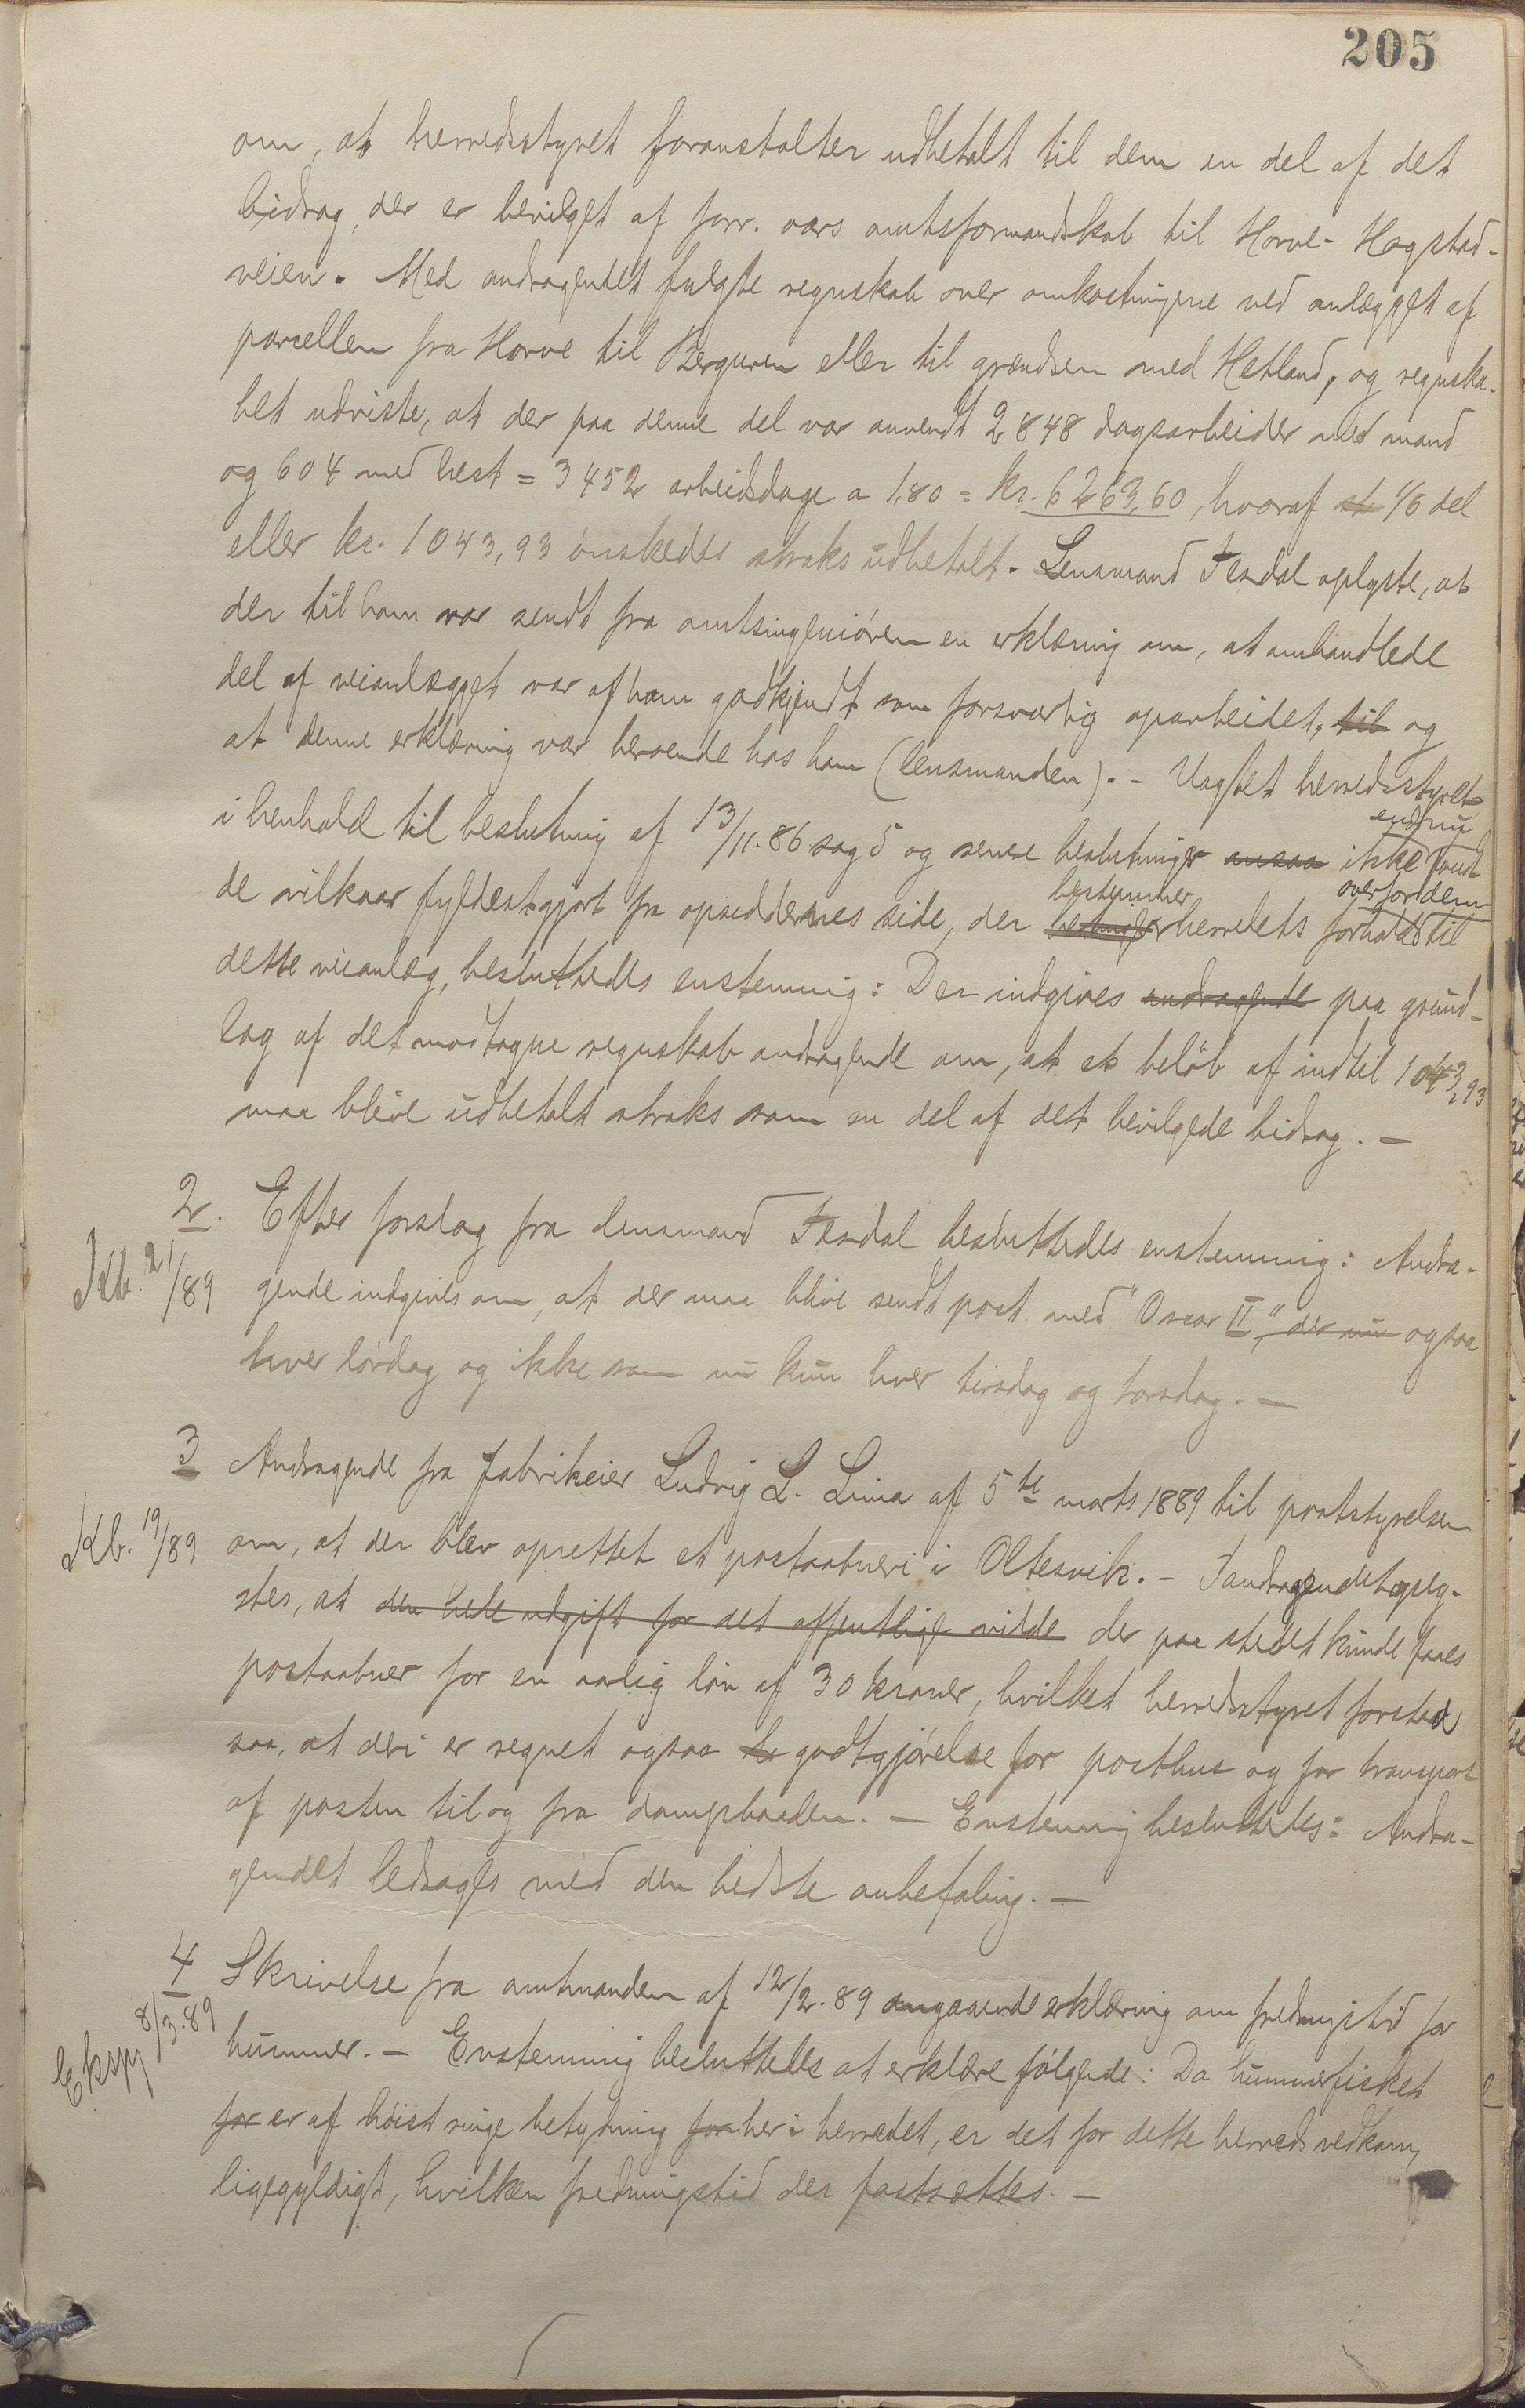 205
om, at herredsstyret foranstalter udbetalt til dem en del af det
bidrag, der er bevilget af forr. aars amtsformandskab til Horve-Hogstad-
veien. Med andragendet fulgte regnskab over omkostningerne ved anlægget af
parcellen fra Horve til Bergeven eller til grændsen med Hetland, og regnska-
bet udviste, at der paa denne del var anvendt 2848 dagsarbeider med mand
og 604 med hest = 3452 arbeidsdage a 1,80 = kr. 6263,60, hvoraf et 1/6 del
eller kr. 1043,93 önskedes straks udbetalt. Lensmand Tesdal oplyste, at
der til ham var sendt fra amtsingeniören en erklæring om, at omhandlede
del af veianlægget var af ham godkjendt som forsvarlig oparbeidet, til og
at denne erklæring var beroende hos ham (lensmanden). - Uagtet herredsstyret
i henhold til beslutning af 13/11.86 sag 5 og senere beslutninger ansaa ikke endnu fandt
de vilkaar fyldestgjort fra opsiddernes side, der betinger bestemmer herredets forhold overfor dem til
dette veianlæg, besluttedes enstemmig: Der indgives andragende paa grund-
lag af det modtagne regnskab andragende om, at et belöb af indtil 1043,93
maa blive udbetalt straks som en del af det bevilgede bidrag. -
2. Efter forslag fra lensmand Tesdal besluttedes enstemmig: Andra-
Kb. 21/89 gende indgives om, at der maa blive sendt post med "Oscar II", der nu ogsaa
hver lördag og ikke som nu kun hver tirsdag og torsdag. -
3 Andragende fra fabrikeier Ludvig L. Lima af 5te marts 1889 til poststyrelsen
Kb. 19/89 om, at der blev oprettet et postaabneri i Oltesvik. - I andragendet oply-
stes, at den hele udgift for det offentlige vilde der paa stedet kunde faaes
postaabner for en aarlig lön af 30 kroner, hvilket herredsstyret forstod
saa, at deri er regnet ogsaa godtgjörelse for posthus og for transport
af posten til og fra dampbaaden. - Enstemmig besluttedes: Andra-
gendet ledsages med den bedste anbefaling. -
4 Skrivelse fra amtmanden af 12/2.89 angaaende erklæring om fredningstid for
Eksp 8/3.89 hummer. - Enstemmig besluttedes at erklære fölgende: Da hummerfisket
for er af höist ringe betydning for her i herredet, er det for dette herreds vedkom,
ligegyldigt, hvilken fredningstid der fastsættes. -